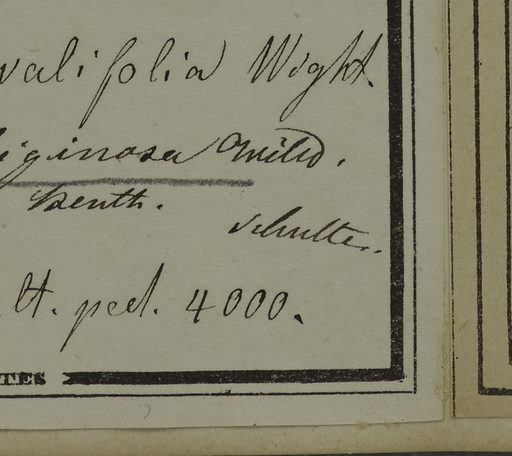 valifolia Wight.
liginosa Willd.
Benth.
Schulte.
lt. ped. 4000.
TES